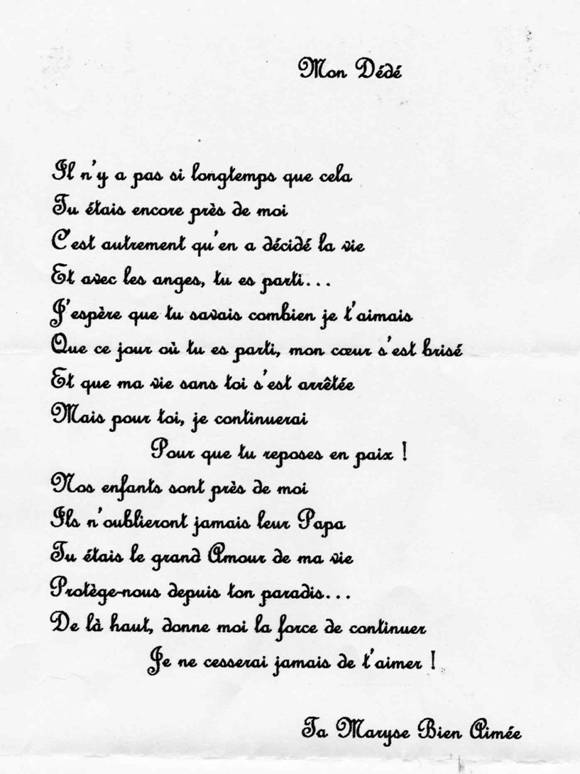 Mon Dédé
Il n'y a pas si longtemps que cela
Tu étais encore près de moi
C'est autrement qu'en a décidé la vie
Et avec les anges, tu es parti...
J'espère que tu savais combien je t'aimais
Que ce jour où tu es parti, mon cœur s'est brisé
Et que ma vie sans toi s'est arrêtée
Mais pour toi, je continuerai
Pour que tu reposes en paix !
Nos enfants sont près de moi
Ils n'oublieront jamais leur Papa
Tu étais le grand Amour de ma vie
Protège-nous depuis ton paradis...
De là haut, donne moi la force de continuer
Je ne cesserai jamais de t'aimer !
Ta Maryse Bien Aimée